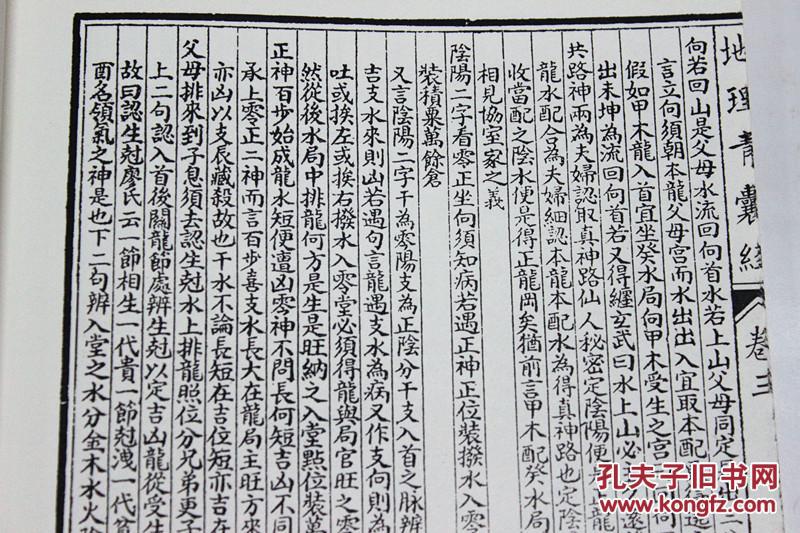 地理青囊經 卷三
向若回山是父母水流回向首水若上山父母同定
言立向須朝本龍父母宮而水出出入宜取本配
假如甲木龍入首宜坐癸水局向甲木受生之宮
出未坤為流回向首若又得纏玄武曰水上山必
共路神兩為夫婦認取真神路仙人秘密定陰陽便是
龍水配合為夫婦細認本龍本配水為得真神路也定陰
收當配之陰水便是得正龍岡矣猶前言甲木配癸水局
相見協室家之義
陰陽二字看零正坐向須知病若遇正神正位裝撥水入零
裝積粟萬餘倉
又言陰陽二字干為零陽支為正陰分干支入首之脉辨
吉支水來則凶若遇句言龍遇支水為病又作支向則
吐或挨左或挨右撥水入零堂必須得龍與局官旺之零
然從後水局中排龍何方是生是旺納之入堂點位裝萬
正神百步始成龍水短便遭凶零神不問長何短吉凶不同
承上零正二神而言百步喜支水長大在龍局主旺方來
亦凶以支辰藏殺故也干水不論長短在吉位短亦吉在
父母排來到子息須去認生尅水上排龍照位分兄弟更子
上二句認入首後關龍節處辨生尅以定吉凶龍從受生
故曰認生尅廖氏云一節相生一代貴一節尅洩一代貧
酉名領氣之神是也下二句辨入堂之水分金木水火
孔夫子旧书网
KONGFZ.COM